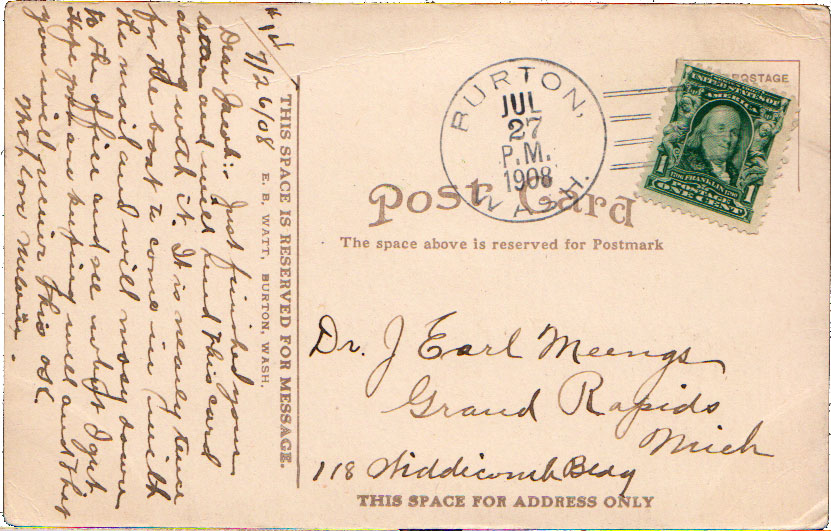 7/26/08
Dear Jacob:- Just finished your
letter and will send this card
along with it. It is nearly time
for the boat to come in with
the mail and will mosy down
to the office and see what I get
Hope you are keeping well and that
you will receive this O.K.
With love
THIS SPACE IS RESERVED FOR MESSAGE.
E. B. WATT, BURTON, WASH.
BURTON,
JUL
27
P.M.
1908
WASH.
POSTAGE
UNITED STATES OF
AMERICA
1706 FRANKLIN 1790
1 POSTAGE 1
ONE CENT
Post Card
The space above is reserved for Postmark
Dr. J Earl Meengs
Grand Rapids
Mich
118 Widdicomb Bldg
THIS SPACE FOR ADDRESS ONLY